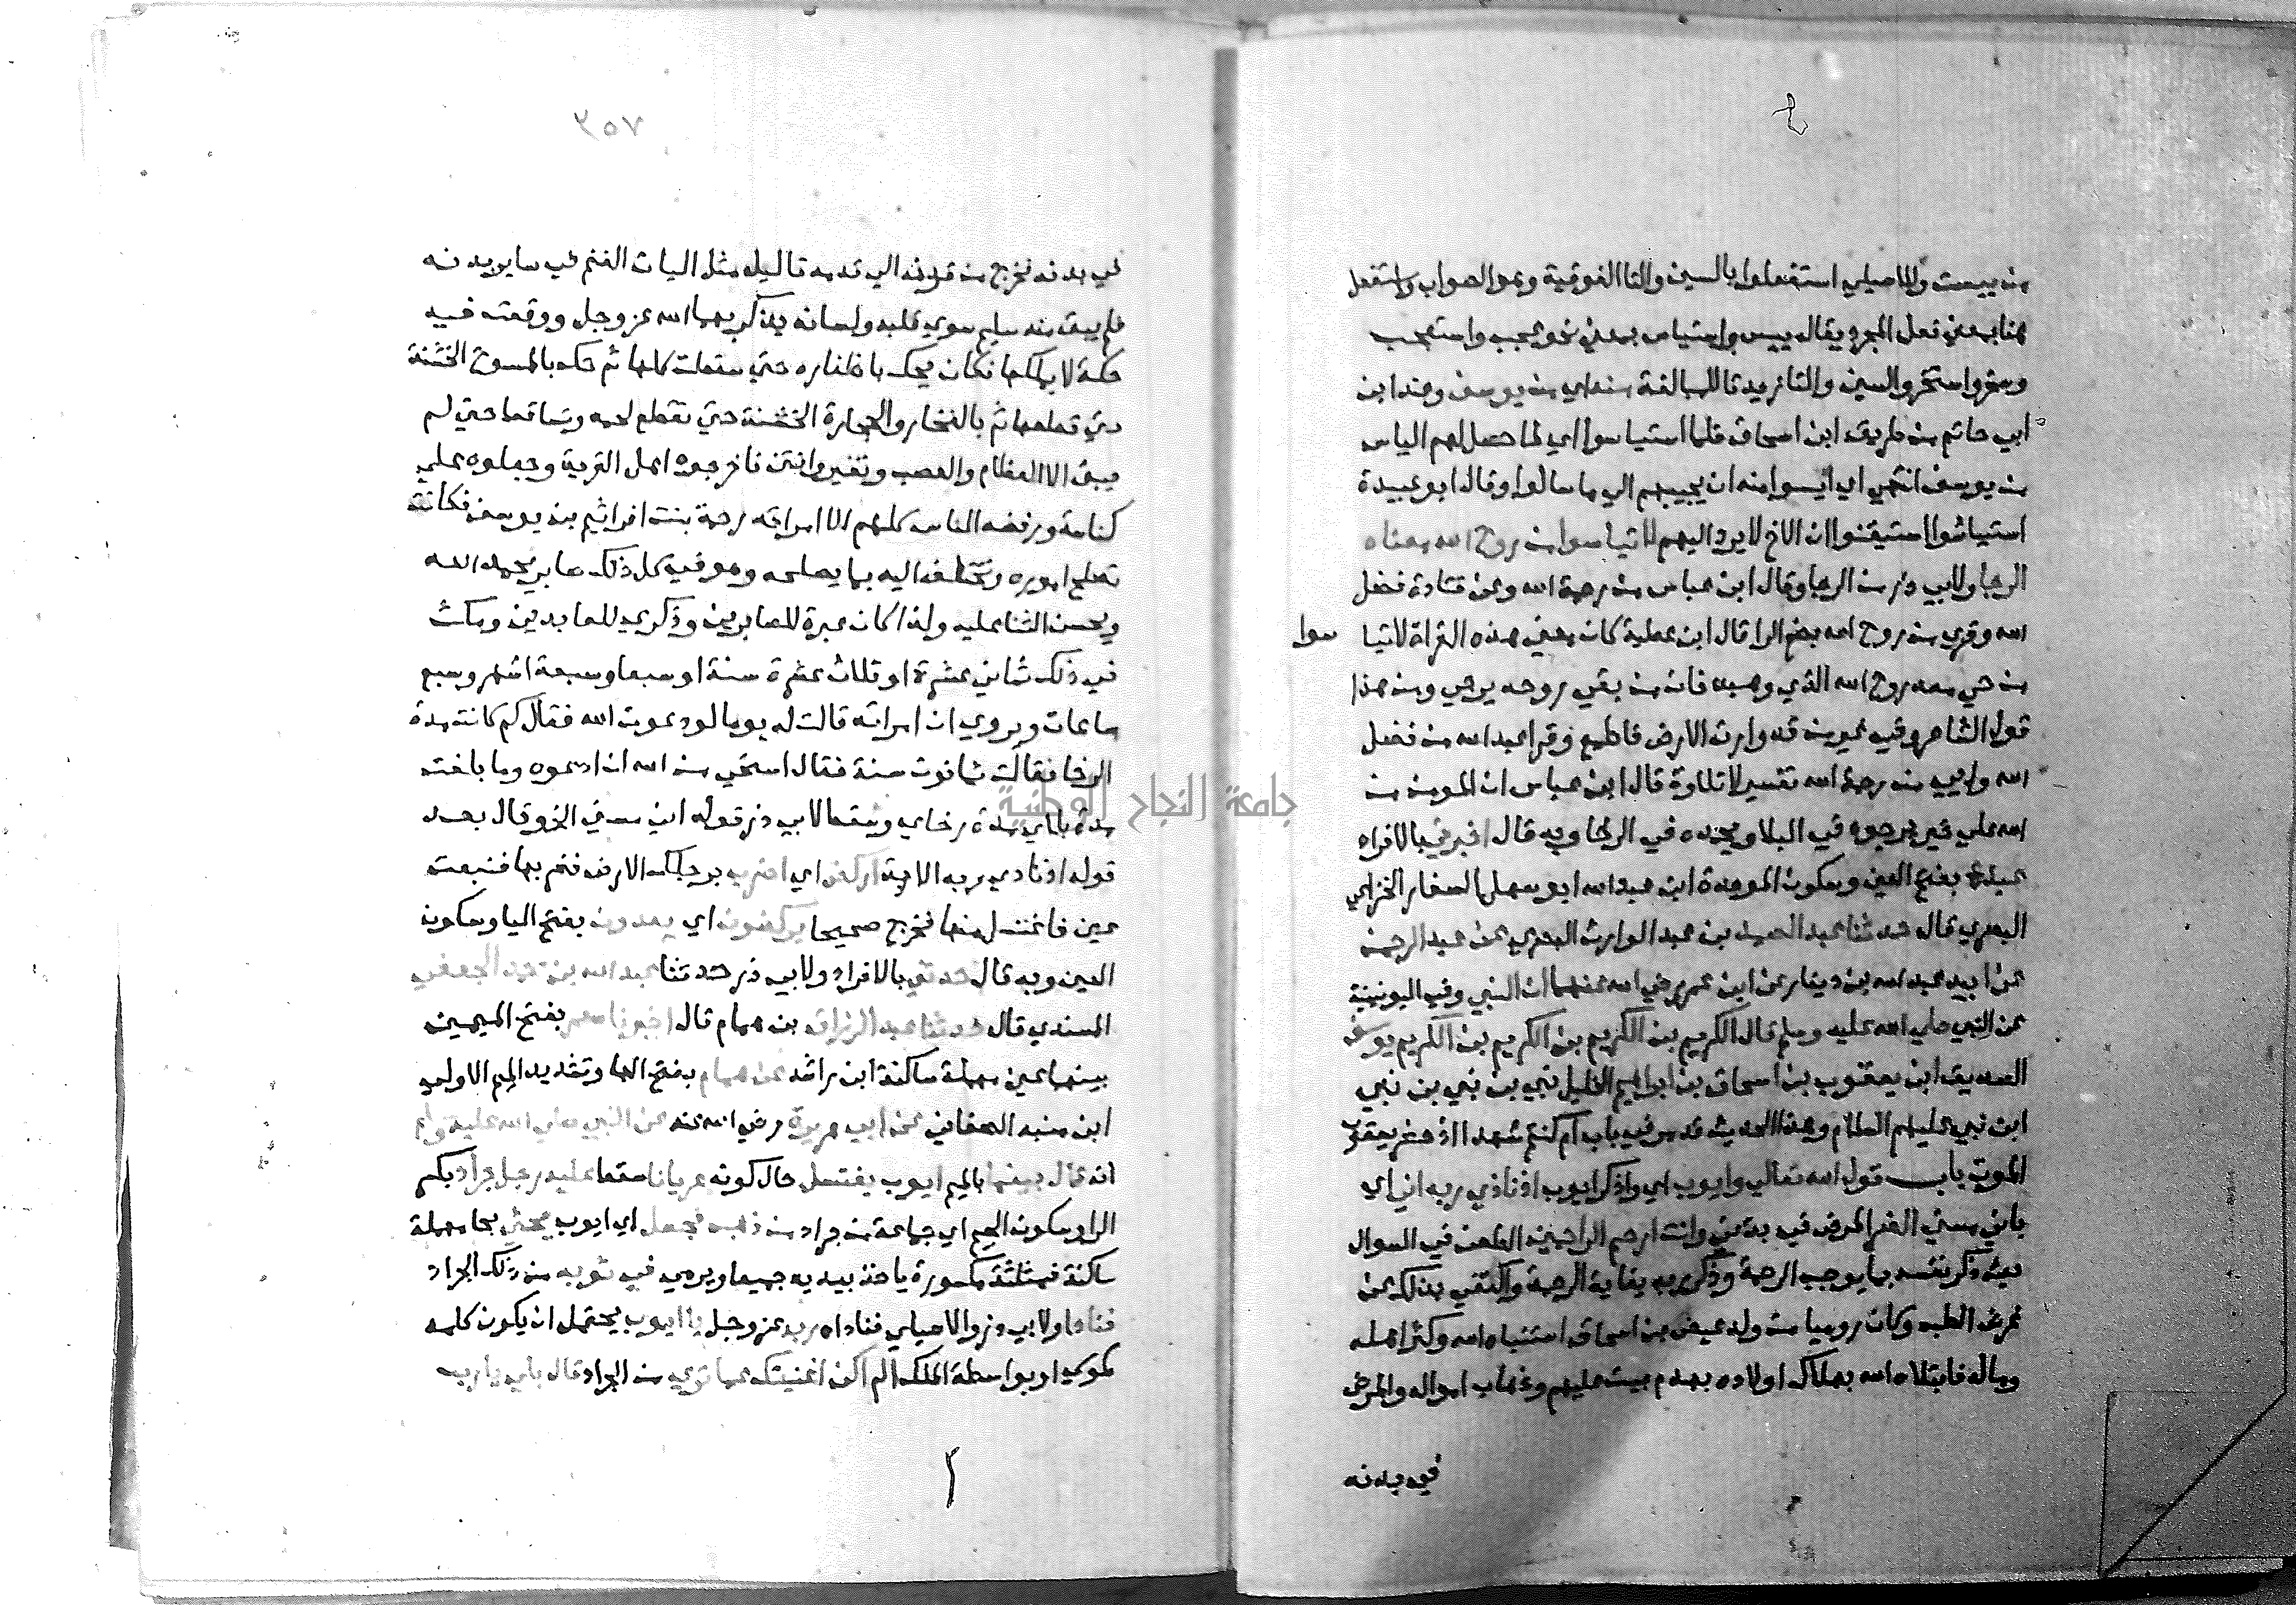 من يئست وللاصيلي استفعلوا بالسين والتا الفوقية وهو الصواب واستفعل
هنا بمعني فعل المجرد يقال ييس واستياس بمعني نحو عجب واستعجب
وسخر واستسخر والسين والتا زيدتا للمبالغة منه اي من يوسف وعند ابن
ابي حاتم من طريق ابن اسحاق فلما استياسوا اي لما حصل لهم الياس
من يوسف انتهي اي ايسوا منه ان يجيبهم الي ما سالوا وقال ابو عبيدة
استياسوا استيقنوا ان الاخ لا يرد اليهم لا تياسوا من روح الله معناه
الرجا ولابي ذر من الرجا وقال ابن عباس من رحمة الله وعن قتادة فضل
الله وقري من روح الله بضم الرا قال ابن عطية كان معني هذه القراة لا تيا سوا
من حي معه روح الله الذي وهبه فان من بقي روحه يرجي ومن هذا
قول الشاعر وفي غير من قد وارت الارض فاطمع وقرا عبد الله من فضل
الله وابي من رحمة الله تفسير لا تلاوة قال ابن عباس ان المومن من
الله علي خير يرجوه في البلا ويحمده في الرخا وبه قال اخبرني بالافراد
عبدة بفتح العين وسكون الموحدة ابن عبد الله ابو سهل الصفار الخزاعي
البصري قال حدثنا عبد الصمد بن عبد الوارث البصري عن عبد الرحمن
عن ابيه عبد الله بن دينار عن ابن عمر رضي الله عنهما ان النبي وفي اليونينية
عن النبي صلي الله عليه وسلم قال الكريم بن الكريم بن الكريم بن الكريم يوسف
الصديق ابن يعقوب بن اسحاق بن ابراهيم الخليل نبي بن نبي بن نبي
ابن نبي عليهم السلام وهذا الحديث قد مر في باب ام كنتم شهدا اذ حضر يعقوب
الموت باب قول الله تعالي وايوب اي واذكر ايوب اذ نادي ربه اني اي
باني مسني الضر المرض في بدني وانت ارحم الراحمين الطف في السوال
حيث ذكر نفسه بما يوجب الرحمة وذكر ربه بغاية الرحمة واكتفي بذلك عن
عرض الطلب وكان روميا من ولد عيص بن اسحاق استنباه الله وكثر اهله
وماله فابتلاه الله بهلاك اولاده بهدم بيت عليهم وذهاب امواله والمرض
في بدنه
٣٥٧
في بدنه فخرج من قرنه الي قدمه ثاليل مثل اليات الغنم في ساير بدنه
فلم يبق منه سليم سوي قلبه ولسانه يذكر بهما الله عز وجل ووقعت فيه
حكة لا يملكها فكان يحك باظفاره حتي سقطت كلها ثم حكه بالمسوح الخشنة
حتي قطعها ثم بالفخار والحجارة الخشنة حتي تقطع لحمه وتساقط حتي لم
يبق الا العظام والعصب وتغير وانتن فاخرجوه اهل القرية وجعلوه علي
كناسة ورفضه الناس كلهم الا امراته رحمة بنت افراثيم بن يوسف فكانت
تصلح اموره وتختلف اليه بما يصلحه وهو في كل ذلك صابر يحمد الله
ويحسن الثنا عليه ولذا كان عبرة للصابرين وذكري للعابدين ومكث
في ذلك ثماني عشرة او ثلاث عشرة سنة او سبعا وسبعة اشهر وسبع
ساعات ويروي ان امراته قالت له يوما لو دعوت الله فقال كم كانت مدة
الرخا فقالت ثمانون سنة فقال استحي من الله ان ادعوه وما بلغت
مدة بلاي مدة رخاي وسقط لابي ذر قوله اني مسني الخ وقال بعد
قوله اذ نادي ربه الاية اركض اي اضرب برجلك الارض فضرب بها فنبعت
عين فاغتسل منها فخرج صحيحا يركضون اي يعدون بفتح اليا وسكون
العين وبه قال حدثني بالافراد ولابي ذر حدثنا عبد الله بن محمد الجعفي
المسندي قال حدثنا عبد الرزاق بن همام قال اخبرنا معمر بفتح الميمين
بينهما عين مهملة ساكنة ابن راشد عن همام بفتح الها وتشديد الميم الاولي
ابن منبه الصنعاني عن ابي هريرة رضي الله عنه عن النبي صلي الله عليه وسلم
انه قال بينما بالميم ايوب يغتسل حال كونه عريانا سقط عليه رجل جراد بكسر
الرا وسكون الجيم اي جماعة من جراد من ذهب فجعل اي ايوب يحثي بحا مهملة
ساكنة فمثلثة مكسورة ياخذ بيديه جميعا ويرمي في ثوبه من ذلك الجراد
فنادا ولابي ذر والاصيلي فناداه ربه عز وجل يا ايوب يحتمل ان يكون كلمه
كموسي او بواسطة الملك الم اكن اغنيتك عما تري من الجراد قال بلي يا رب
جامعة النجاح الوطنية